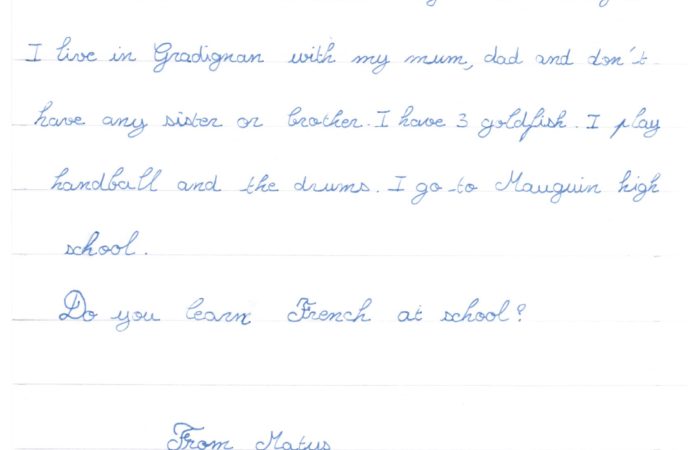 I live in Gradignan with my mum, dad and don't
have any sister or brother. I have 3 goldfish. I play
handball and the drums. I go to Mauguin high
school.
Do you learn French at school?
From Matus